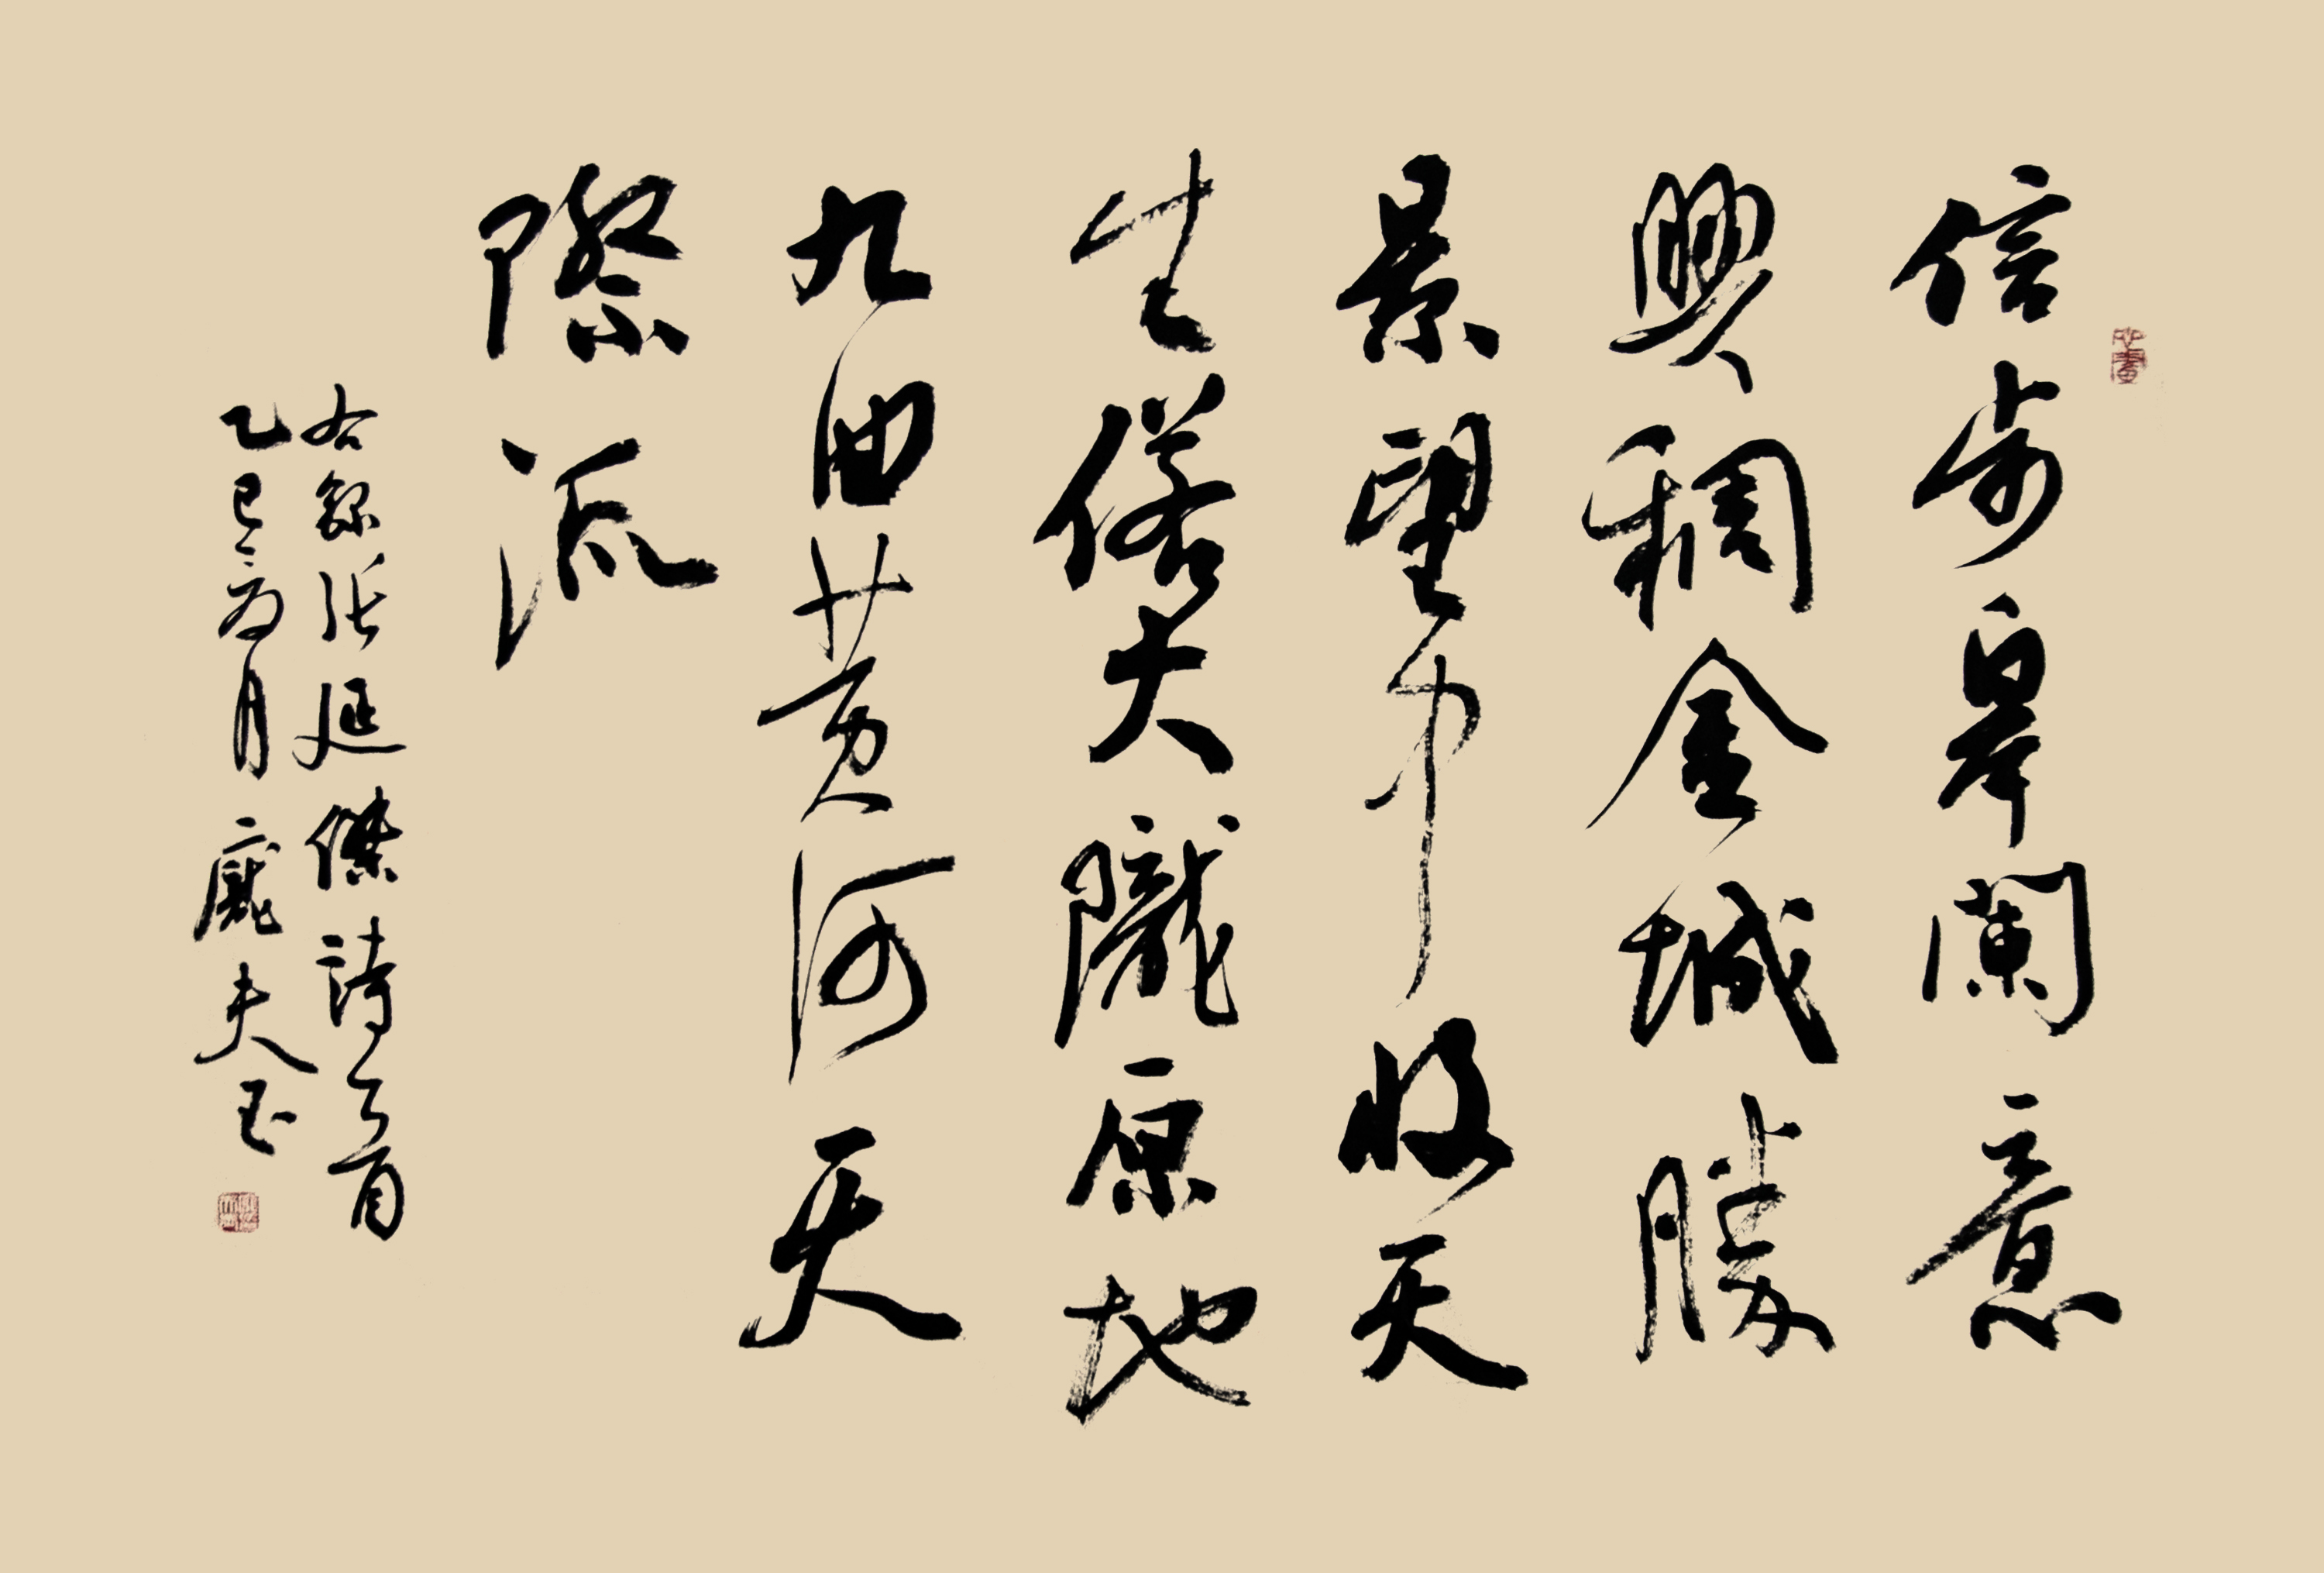 信步皋蘭意
興稠金城勝
景望中收天
生偌大隴原地
九曲黃河天
際流
右錄張延傑詩一首
乙巳
月龐夫玉